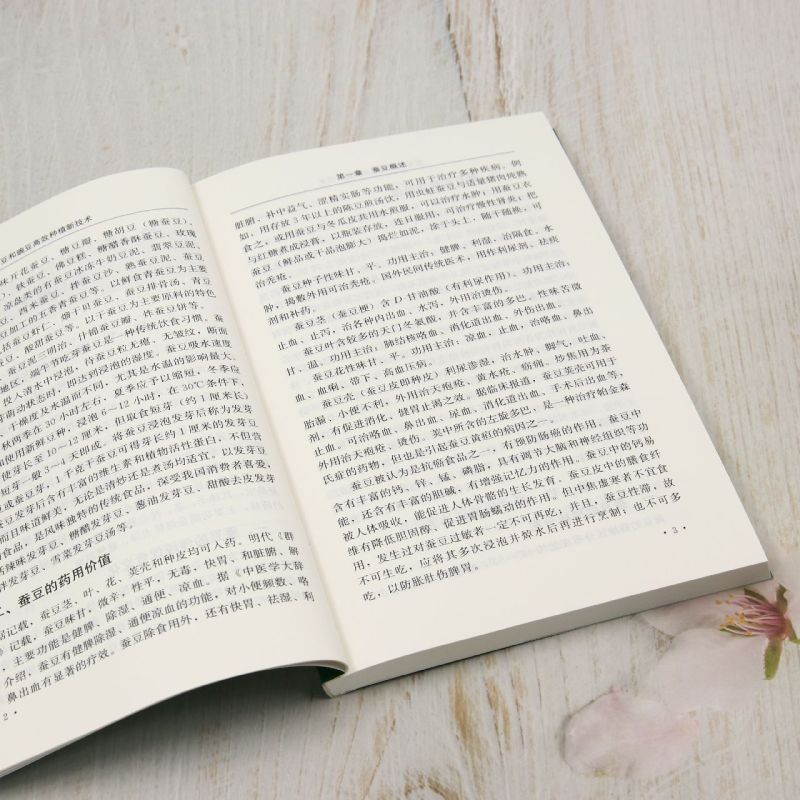 豆和豌豆高效种植新技术
味芹花蚕豆、糖豆瓣、糖胡豆（糖蚕豆）、
、铁蚕豆、佛豆糕、糖醋香酥蚕豆、玫瑰
凉盘类的有蚕豆冰冻牛奶豆泥、翡翠豆泥
豆、西米蚕豆、拌蚕豆沙、熟蚕豆泥、蚕豆
豆加工的五香青蚕豆等。以鲜食青蚕豆为主要
括蚕豆虾仁、骗干贝蚕豆、蚕豆排骨汤、青豆
豆、酸甜蚕豆等。以干蚕豆为主要原料的特色
豆、蚕豆泥三明治、什锦蚕豆瓣、炸蚕豆饼等。
地区，端午节吃芽蚕豆是一种传统饮食习惯。蚕豆
投入清水中浸泡，待蚕豆粒无瘪，无皱纹，断面
芽萌动状态时，即达到浸泡的湿度。蚕豆吸水速度
干燥度及水温而不同，尤其是水温的影响最大。
秋两季在30小时左右，夏季应予以缩短，冬季应
使用新鲜豆种，浸泡6～12小时，在30℃条件下，
使芽长至10～12厘米，但取食短芽（约1厘米长）
短芽一般3～4天即成。将蚕豆浸泡发芽后称为发芽
或蚕豆芽，1千克干蚕豆可得芽长约1厘米的发芽
蚕豆发芽后含有丰富的维生素和植物活性蛋白，不但营
而且味道鲜美，无论是清炒还是煮汤均适宜。以发芽豆
的食品，是风味独特的传统食品，深受我国消费者喜爱，
括辣味发芽豆、糖醋发芽豆、葱油发芽豆、甜酸去皮发芽
拌发芽豆、雪菜发芽豆汤等。
二、蚕豆的药用价值
据记载，蚕豆茎、叶、花、荚壳和种皮均可入药。明代《群
》记载，蚕豆味甘，微辛，性平，无毒，快胃、和脏腑、解
，主要功能是健脾、除湿、通便、凉血。据《中医学大辞
介绍，蚕豆有健脾除湿、通便凉血的功能，对小便频数、咯
鼻出血有显著的疗效。蚕豆除食用外，还有快胃、祛湿、利
2 ·
第一章 蚕豆概述
脏腑、补中益气、涩精实肠等功能，可用于治疗多种疾病。例
如，用存放3年以上的陈豆煎汤饮，用虫蛀蚕豆与适量猪肉炖熟
食之，或用蚕豆与冬瓜皮共用水煎服，可以治疗水肿；用蚕豆衣
与红糖煮成浸膏，以瓶装存放，连日服用，可治疗慢性肾炎。把
蚕豆（鲜品或干品泡膨大）捣烂如泥，涂于头上，随干随换，可
治秃疮。
蚕豆种子性味甘、平，功用主治：健脾，利湿，治隔食、水
肿，捣敷外用可治秃疮。国外民间传统医术，用作利尿剂、祛痰
剂和补药。
蚕豆茎（蚕豆梗）含D-甘油酸（有利尿作用）。功用主治：
止血、止泻，治各种内出血、水泻，外用治烫伤。
蚕豆叶含较多的天门冬氨酸，并含丰富的多巴。性味苦微
甘、温，功用主治：肺结核咯血、消化道出血、外伤出血。
蚕豆花性味甘、平，功用主治：凉血，止血，治咯血、鼻出
血、血痢、带下、高血压病。
蚕豆壳（蚕豆皮即种皮）利尿渗湿，治水肿、脚气，吐血、
胎漏、小便不利，外用治天疱疮、黄水疮、疬痈。炒焦用为茶
剂，有促进消化、健胃止渴之效。据临床报道，蚕豆荚壳可用于
止血。可治咯血、鼻出血、尿血、消化道出血、手术后出血等，
外用治天疱疮、烫伤。荚中所含的左旋多巴，是一种治疗帕金森
氏症的药物，但也是引起蚕豆黄疸的病因之一。
蚕豆被认为是抗癌食品之一，有预防肠癌的作用。蚕豆中
含有丰富的钙、锌、锰、磷脂，具有调节大脑和神经组织等功
能，还含有丰富的胆碱，有增强记忆力的作用。蚕豆中的钙易
被人体吸收，能促进人体骨骼的生长发育。蚕豆皮中的膳食纤
维有降低胆固醇、促进胃肠蠕动的作用。但中焦虚寒者不宜食
用，发生过对蚕豆过敏者一定不可再吃，并且，蚕豆性滞，故
不可生吃，应将其多次浸泡并焯水后再进行烹制；也不可多
吃，以防胀肚伤脾胃。
· 3 ·